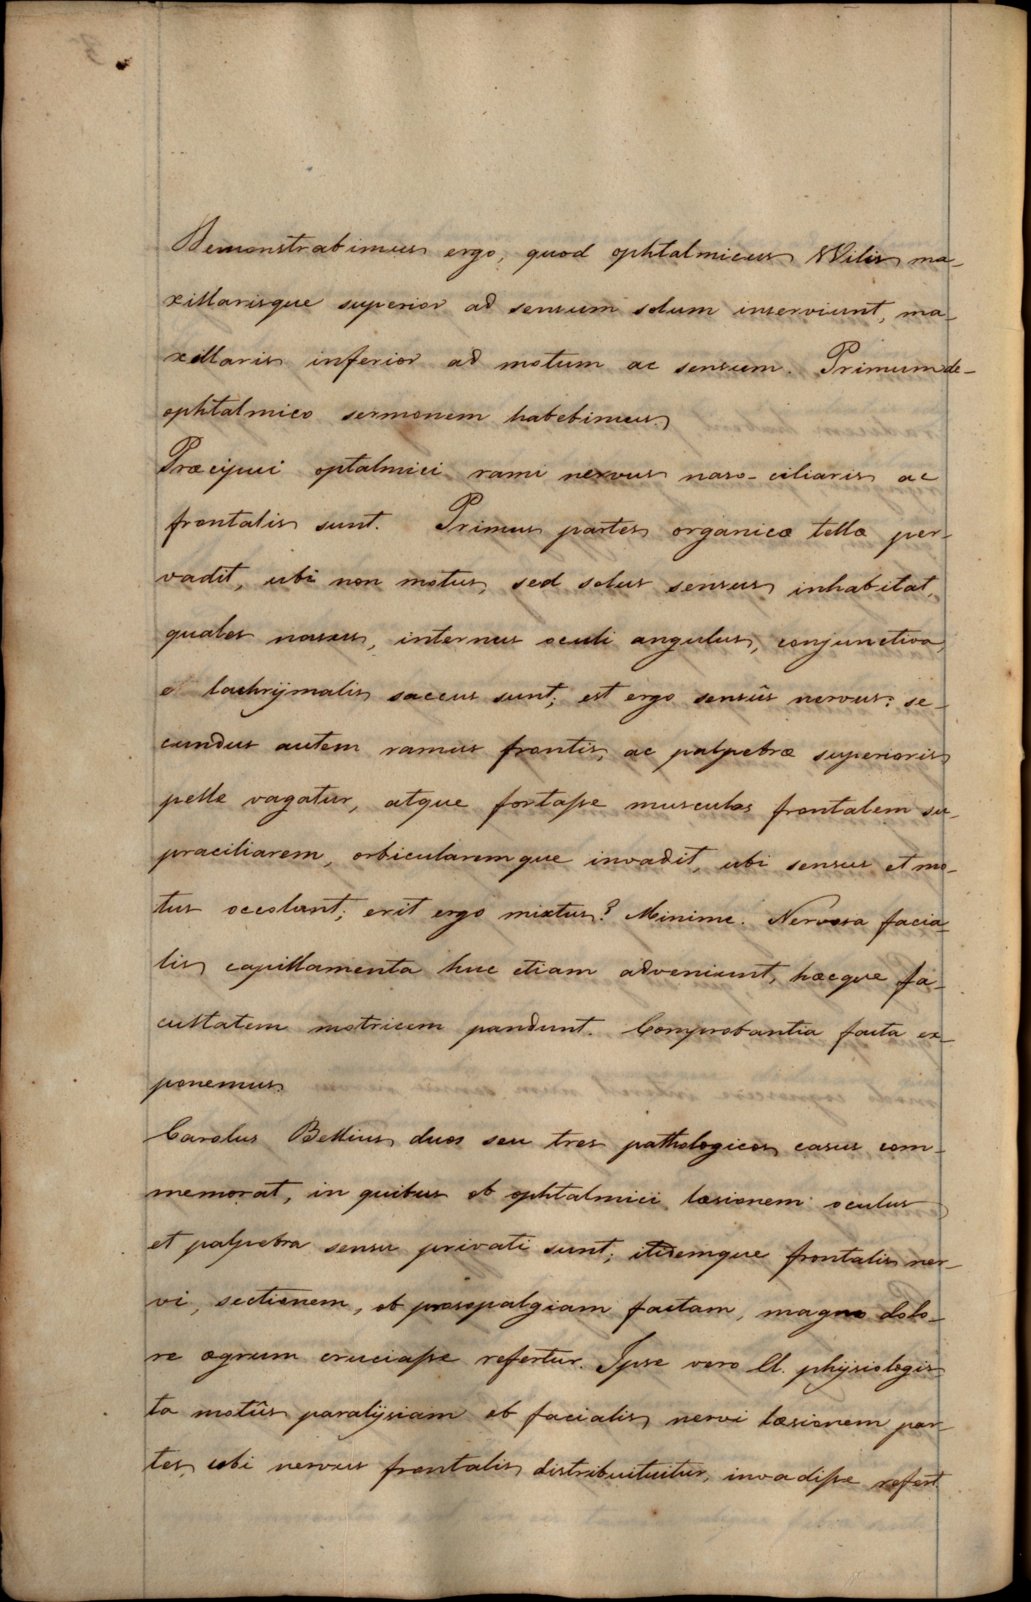 Demonstrabimus ergo, quod ophtalmicus Wilis ma-
xillarisque superior ad sensum solum inserviunt, ma-
xillaris inferior ad motum ac sensum. Primum de
ophtalmico sermonem habebimus.
Præcipui optalmici rami nervus naso-ciliaris ac
frontalis sunt. Primus partes organicæ tellæ per-
vadit, ubi non motus, sed solus sensus inhabitat,
quales nasus, internus oculi angulus, conjunctiva,
et lachrÿmalis saccus sunt; est ergo sensûs nervus: se-
cundus autem ramus frontis, ac palpebræ superioris
pelle vagatur, atque fortaſse musculos frontalem su-
praciliarem, orbicularemque invadit, ubi sensus et mo-
tus occolunt; erit ergo mixtus? Minime. Nervosa facia-
lis capillamenta huc etiam adveniunt, hæcque fa-
cultatem motricem pandunt. Comprobantia facta ex-
ponemus.
Carolus Bellius duos seu tres pathologicos casus com-
memorat, in quibus ob ophtalmici læsionem oculus
et palpebra sensu privati sunt; itidemque frontalis ner-
vi, sectionem, ob prosopalgiam factam, magno dolo-
re ægrum cruciaſse refertur. Ipse vero Cl. phÿsiologis-
ta motûs paralÿsiam ob facialis nervi læsionem par-
tes, ubi nervus frontalis distribuituitur, invadiſse refert.